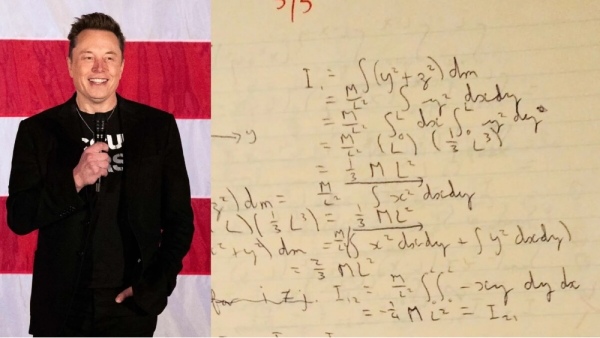 5/5
I₁ = ∫(y²+z²) dm
= M/L² ∫ y² dxdy
= M/L² ∫₀ᴸ dx ∫₀ᴸ y² dy
= M/L² (L) (⅓ L³)
= ⅓ M L²
→ y
²) dm = M/L² ∫ x² dxdy
L)(⅓ L³) = ⅓ M L²
² + y²) dm = M/L² (∫ x² dxdy + ∫ y² dxdy)
= ⅔ M L²
I₁₂ = M/L² ∫₀ᴸ∫₀ᴸ -xy dy dx
= -¼ M L² = I₂₁